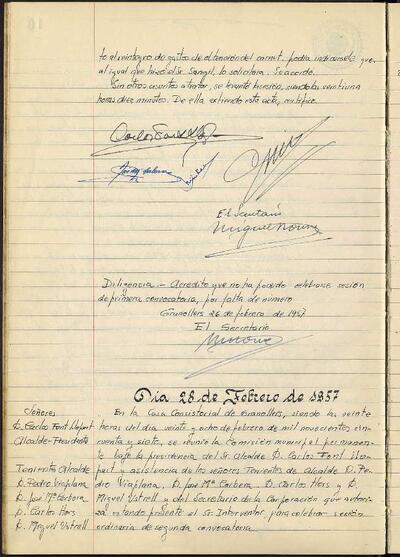 to el reintegro de gastos de obtención del carnet, podía indicársele que,
al igual que hizo el Sr. Sangil, lo solicitara. Se acordó.
Sin otros asuntos a tratar, se levantó la sesión, siendo las veintiuna
horas diez minutos. De ella extiendo esta acta, certifico.
El Secretario
Diligencia.- Acredito que no ha podido celebrarse sesión
de primera convocatoria, por falta de número
Granollers 26 de febrero de 1957
El Secretario
Día 28 de Febrero de 1957
Señores
D. Carlos Font Llopart
Alcalde-Presidente
Tenientes Alcalde
D. Pedro Viaplana
D. José Mª Corbera
D. Carlos Hors
D. Miguel
En la Casa Consistorial de Granollers, siendo las veinte
horas del día veinte y ocho de febrero de mil novecientos cin-
cuenta y siete, se reunió la Comisión municipal permanen-
te bajo la presidencia del Sr. Alcalde D. Carlos Font Llo-
part y asistencia de los señores Tenientes de Alcalde D. Pe-
dro Viaplana, D. José Mª Corbera, D. Carlos Hors y D.
Miguel y del Secretario de la Corporación que autori-
za estando presente el Sr. Interventor para celebrar sesión
ordinaria de segunda convocatoria.